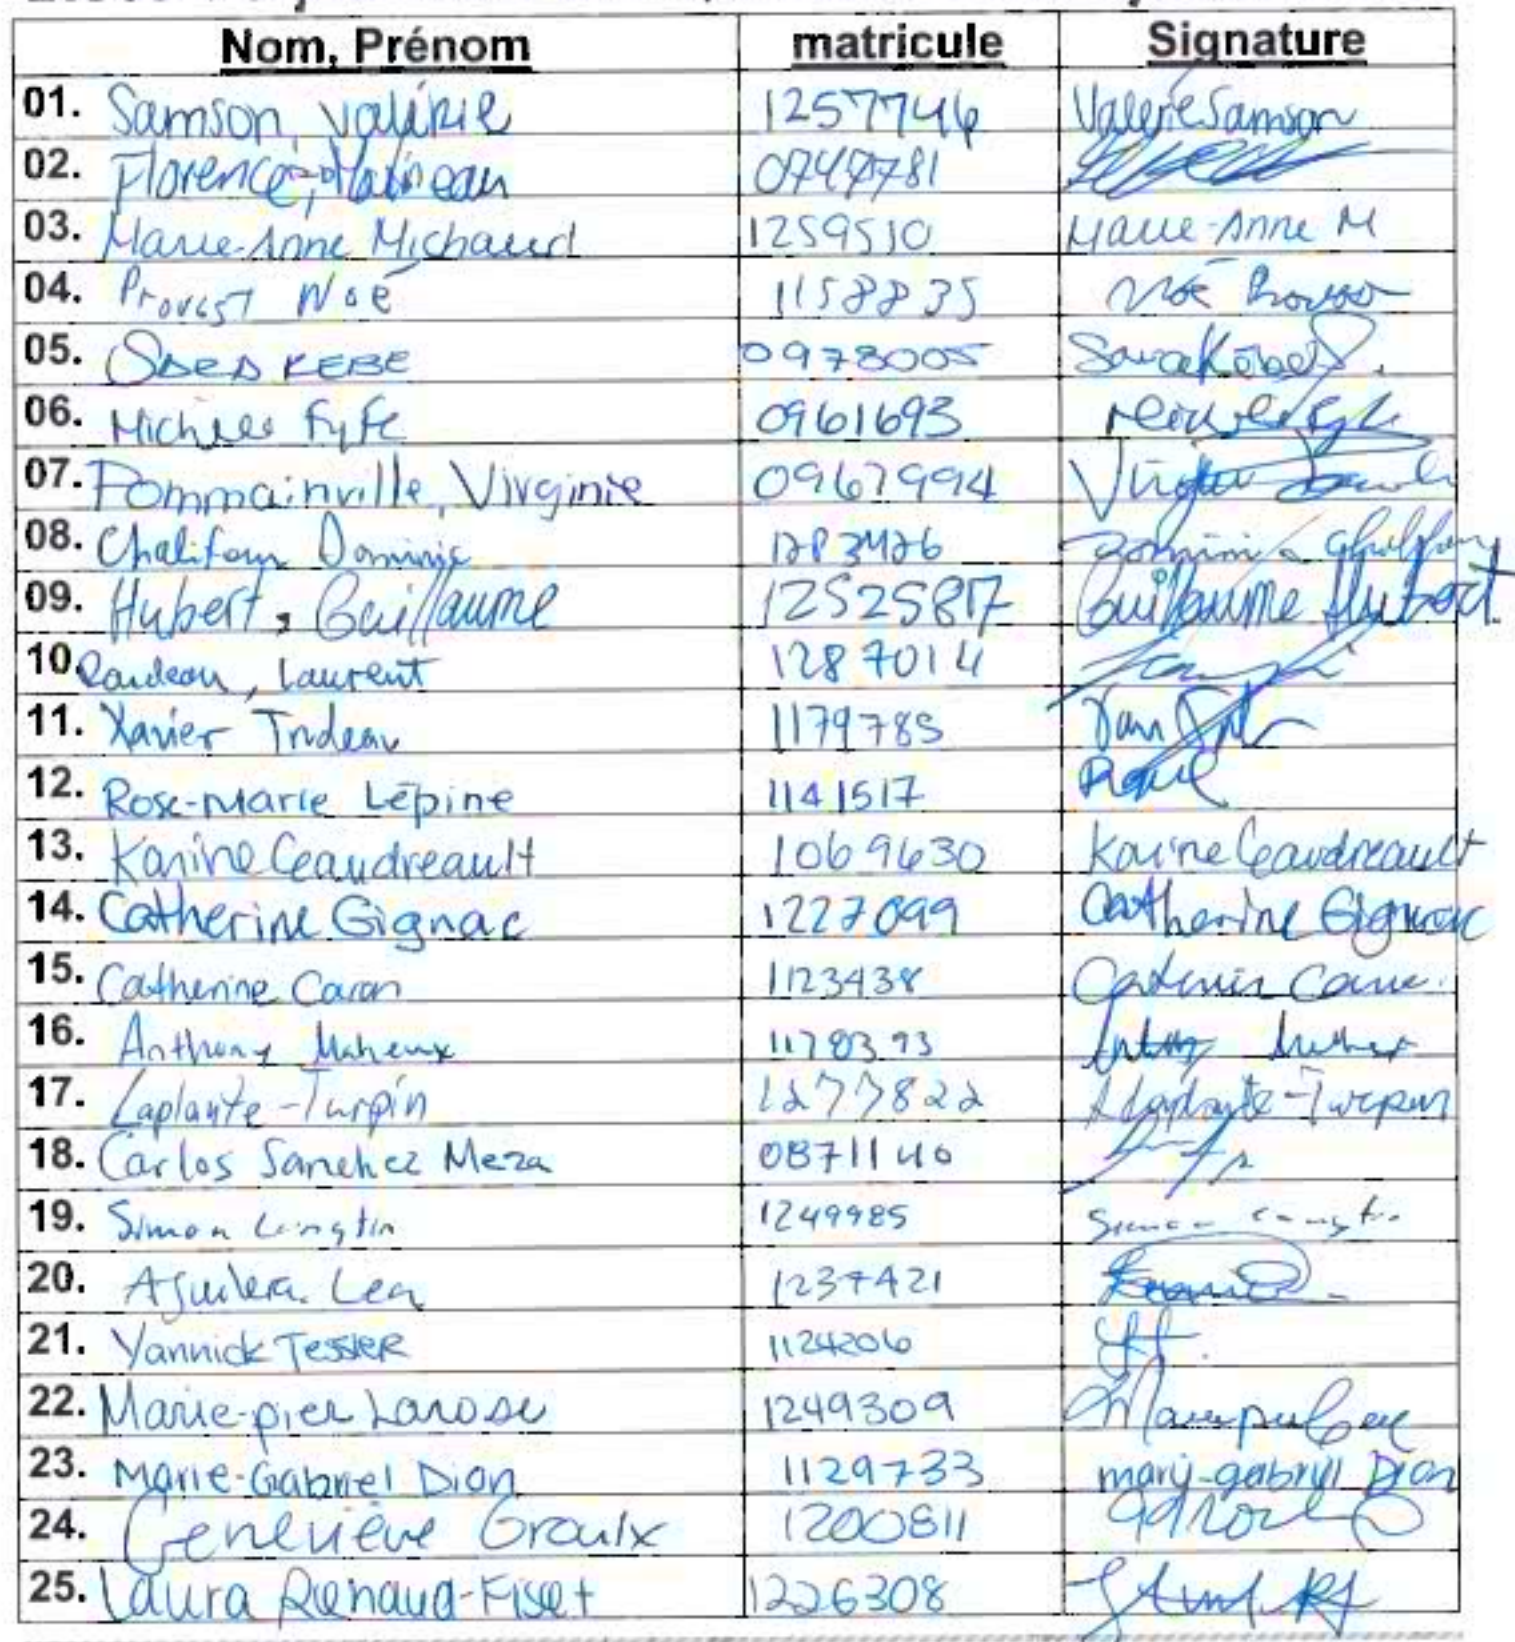 Nom, Prénom matricule Signature
01. Samson, Valérie 1257746 Valérie Samson
02. Florence, Martineau 0747781
03. Marie-Anne Michaud 1259510 Marie-Anne M
04. Provost Noé 1158835 Noé Provost
05. KEBE 0978005
06. Michèle Fyfe 0961693
07. Pommainville, Virginie 0967994
08. Chalifour Dominic 1283426 Dominic Chalifour
09. Hubert, Guillaume 12525817 Guillaume Hubert
10. Laurent 1287014
11. Xavier Trudeau 1179785
12. Rose-Marie Lépine 1141517
13. Karine Ceaudreault 1069630 Karine Ceaudreault
14. Catherine Gignac 1227099 Catherine Gignac
15. Catherine Caron 1123438 Catherine Caron
16. Anthony Maheux 1178393 Anthony Maheux
17. Laplante-Turpin 1277822 Laplante-Turpin
18. Carlos Sanchez Meza 0871140
19. Simon Longtin 1249985 Simon Longtin
20. Aguilera Lea 1237421
21. Yannick Tessier 1124206
22. Marie-pier Larose 1249309
23. Marie-Gabriel Dion 1129733 mary-gabryll Dion
24. Geneviève Groulx 1200811
25. Laura Renaud-Fiset 1226308